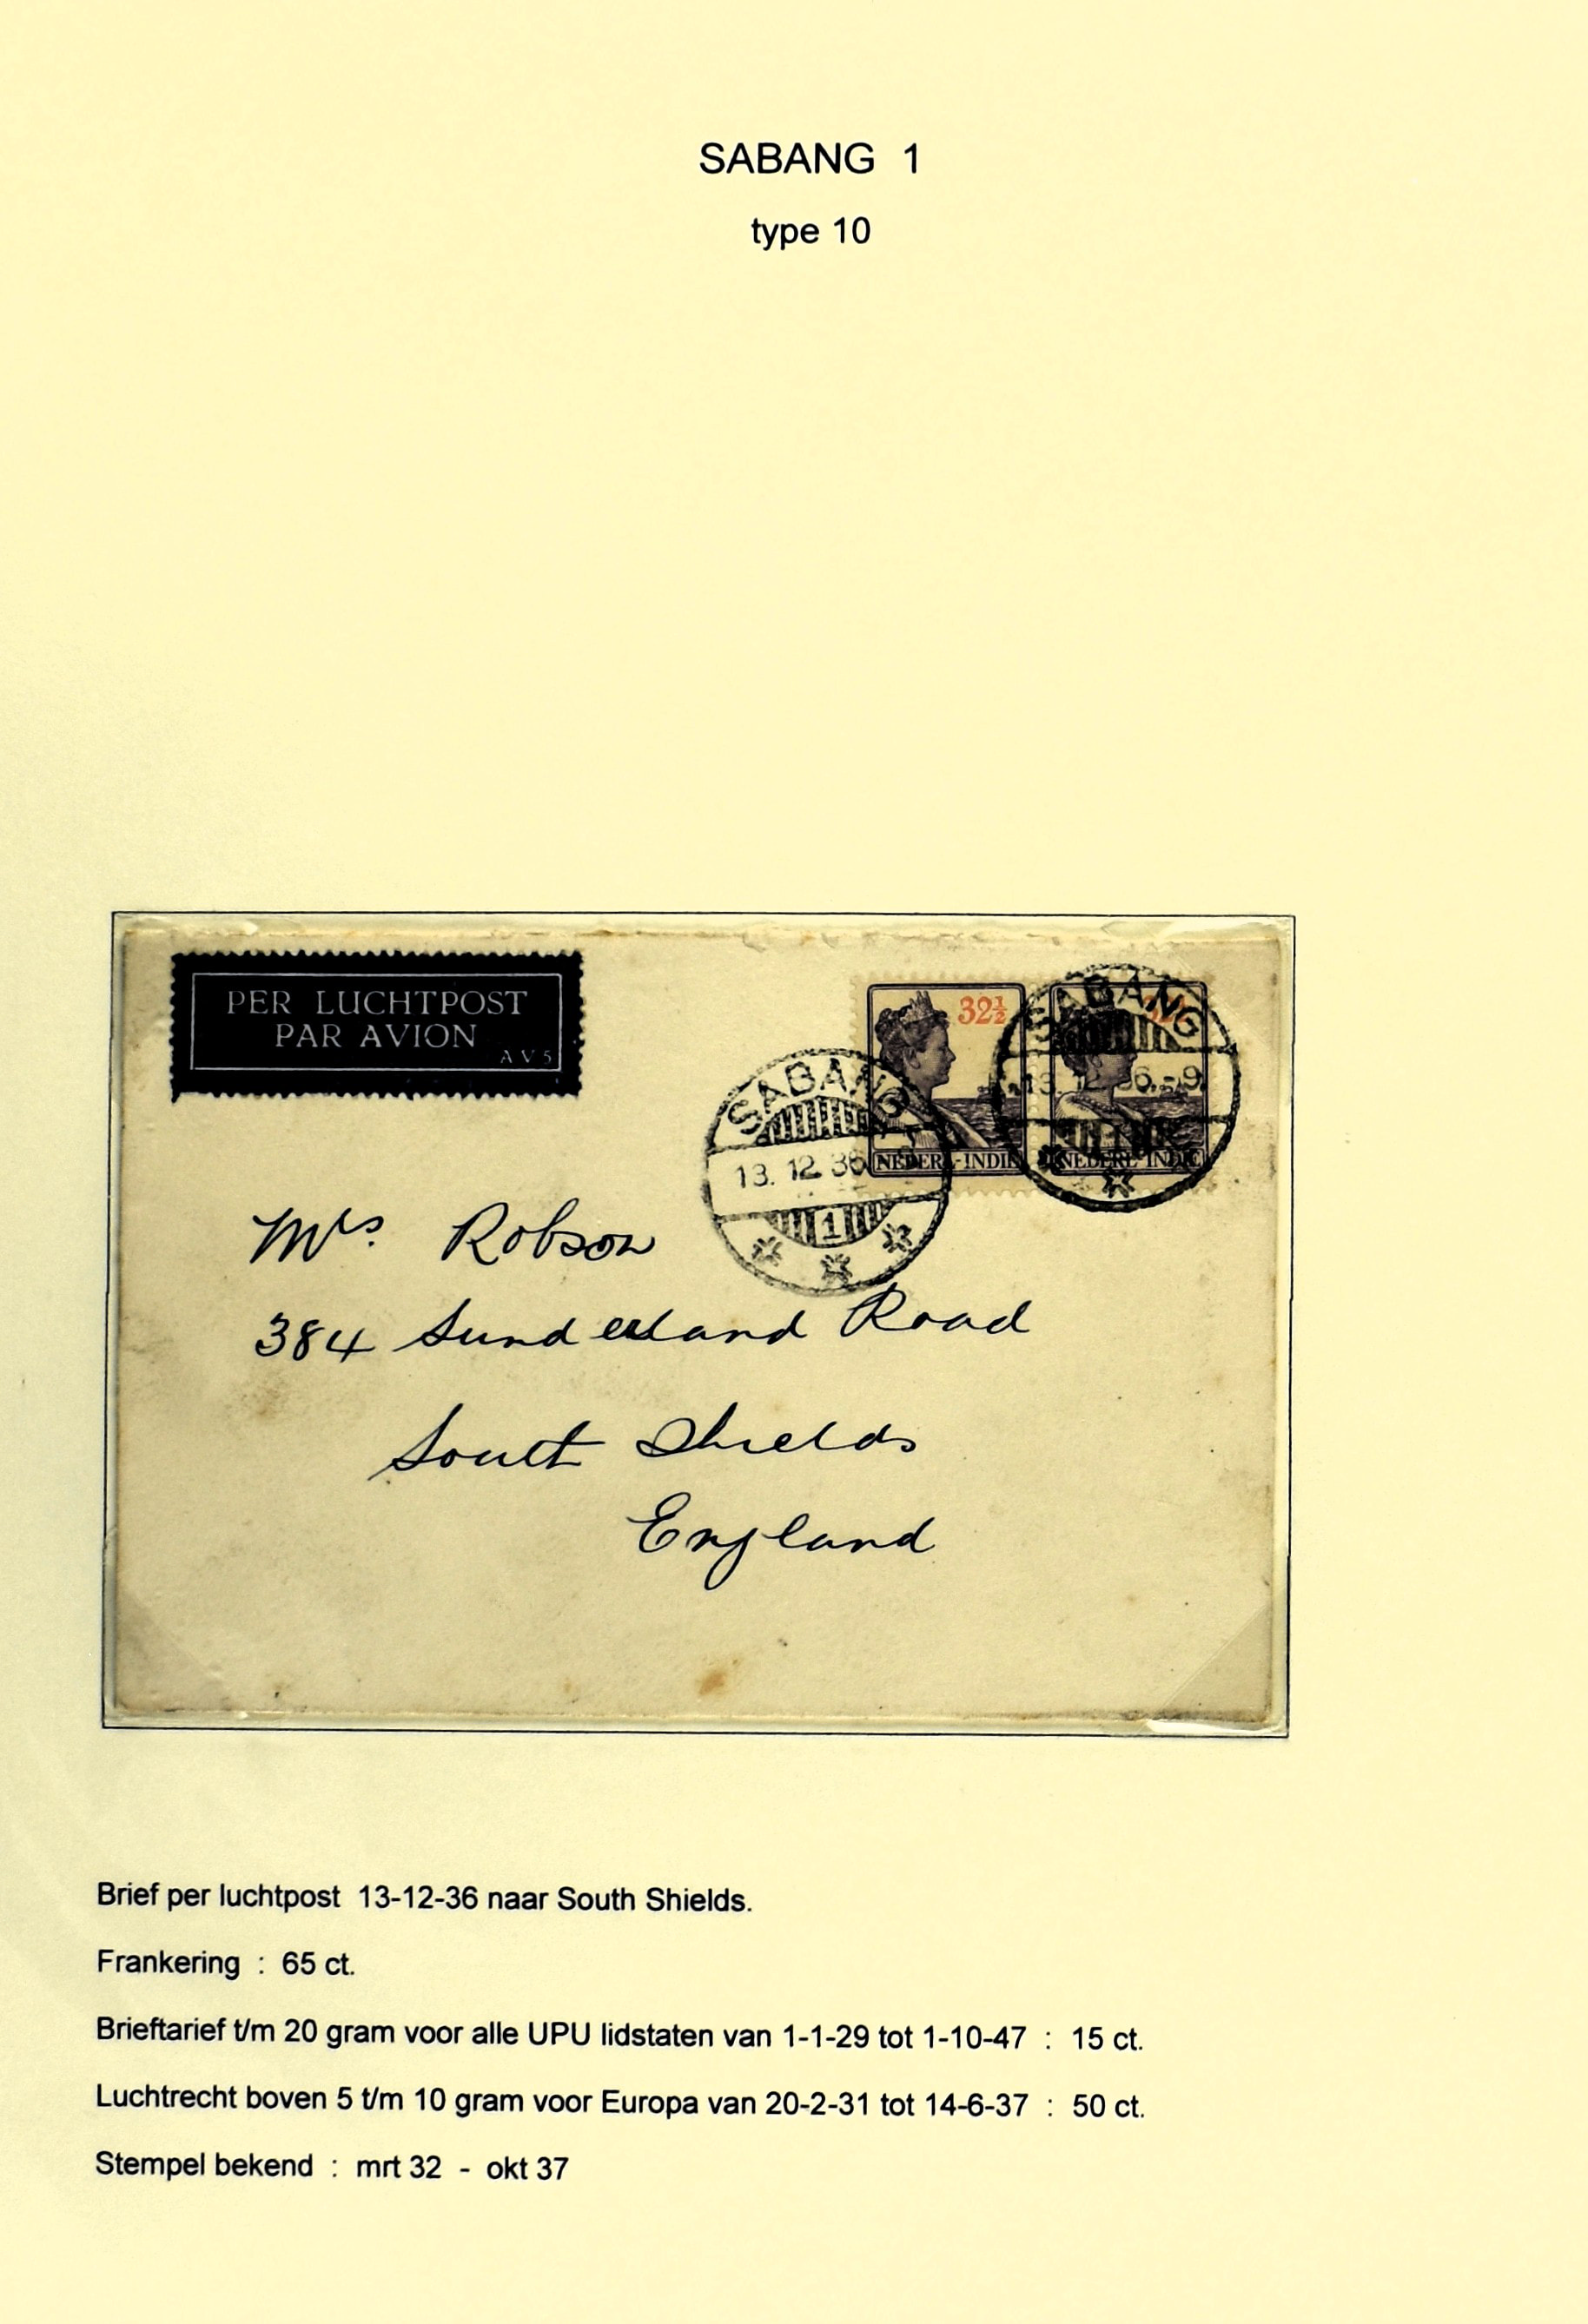 SABANG 1
type 10
PER LUCHTPOST
PAR AVION
A V 5
32½
SABANG
NEDERL-INDIE
SABANG
13. 12 36
1
13. 36.-9
NEDERL-INDIE
Mrs Robson
384 Sunderland Road
South Shields
England
Brief per luchtpost 13-12-36 naar South Shields.
Frankering : 65 ct.
Brieftarief t/m 20 gram voor alle UPU lidstaten van 1-1-29 tot 1-10-47 : 15 ct.
Luchtrecht boven 5 t/m 10 gram voor Europa van 20-2-31 tot 14-6-37 : 50 ct.
Stempel bekend : mrt 32 - okt 37